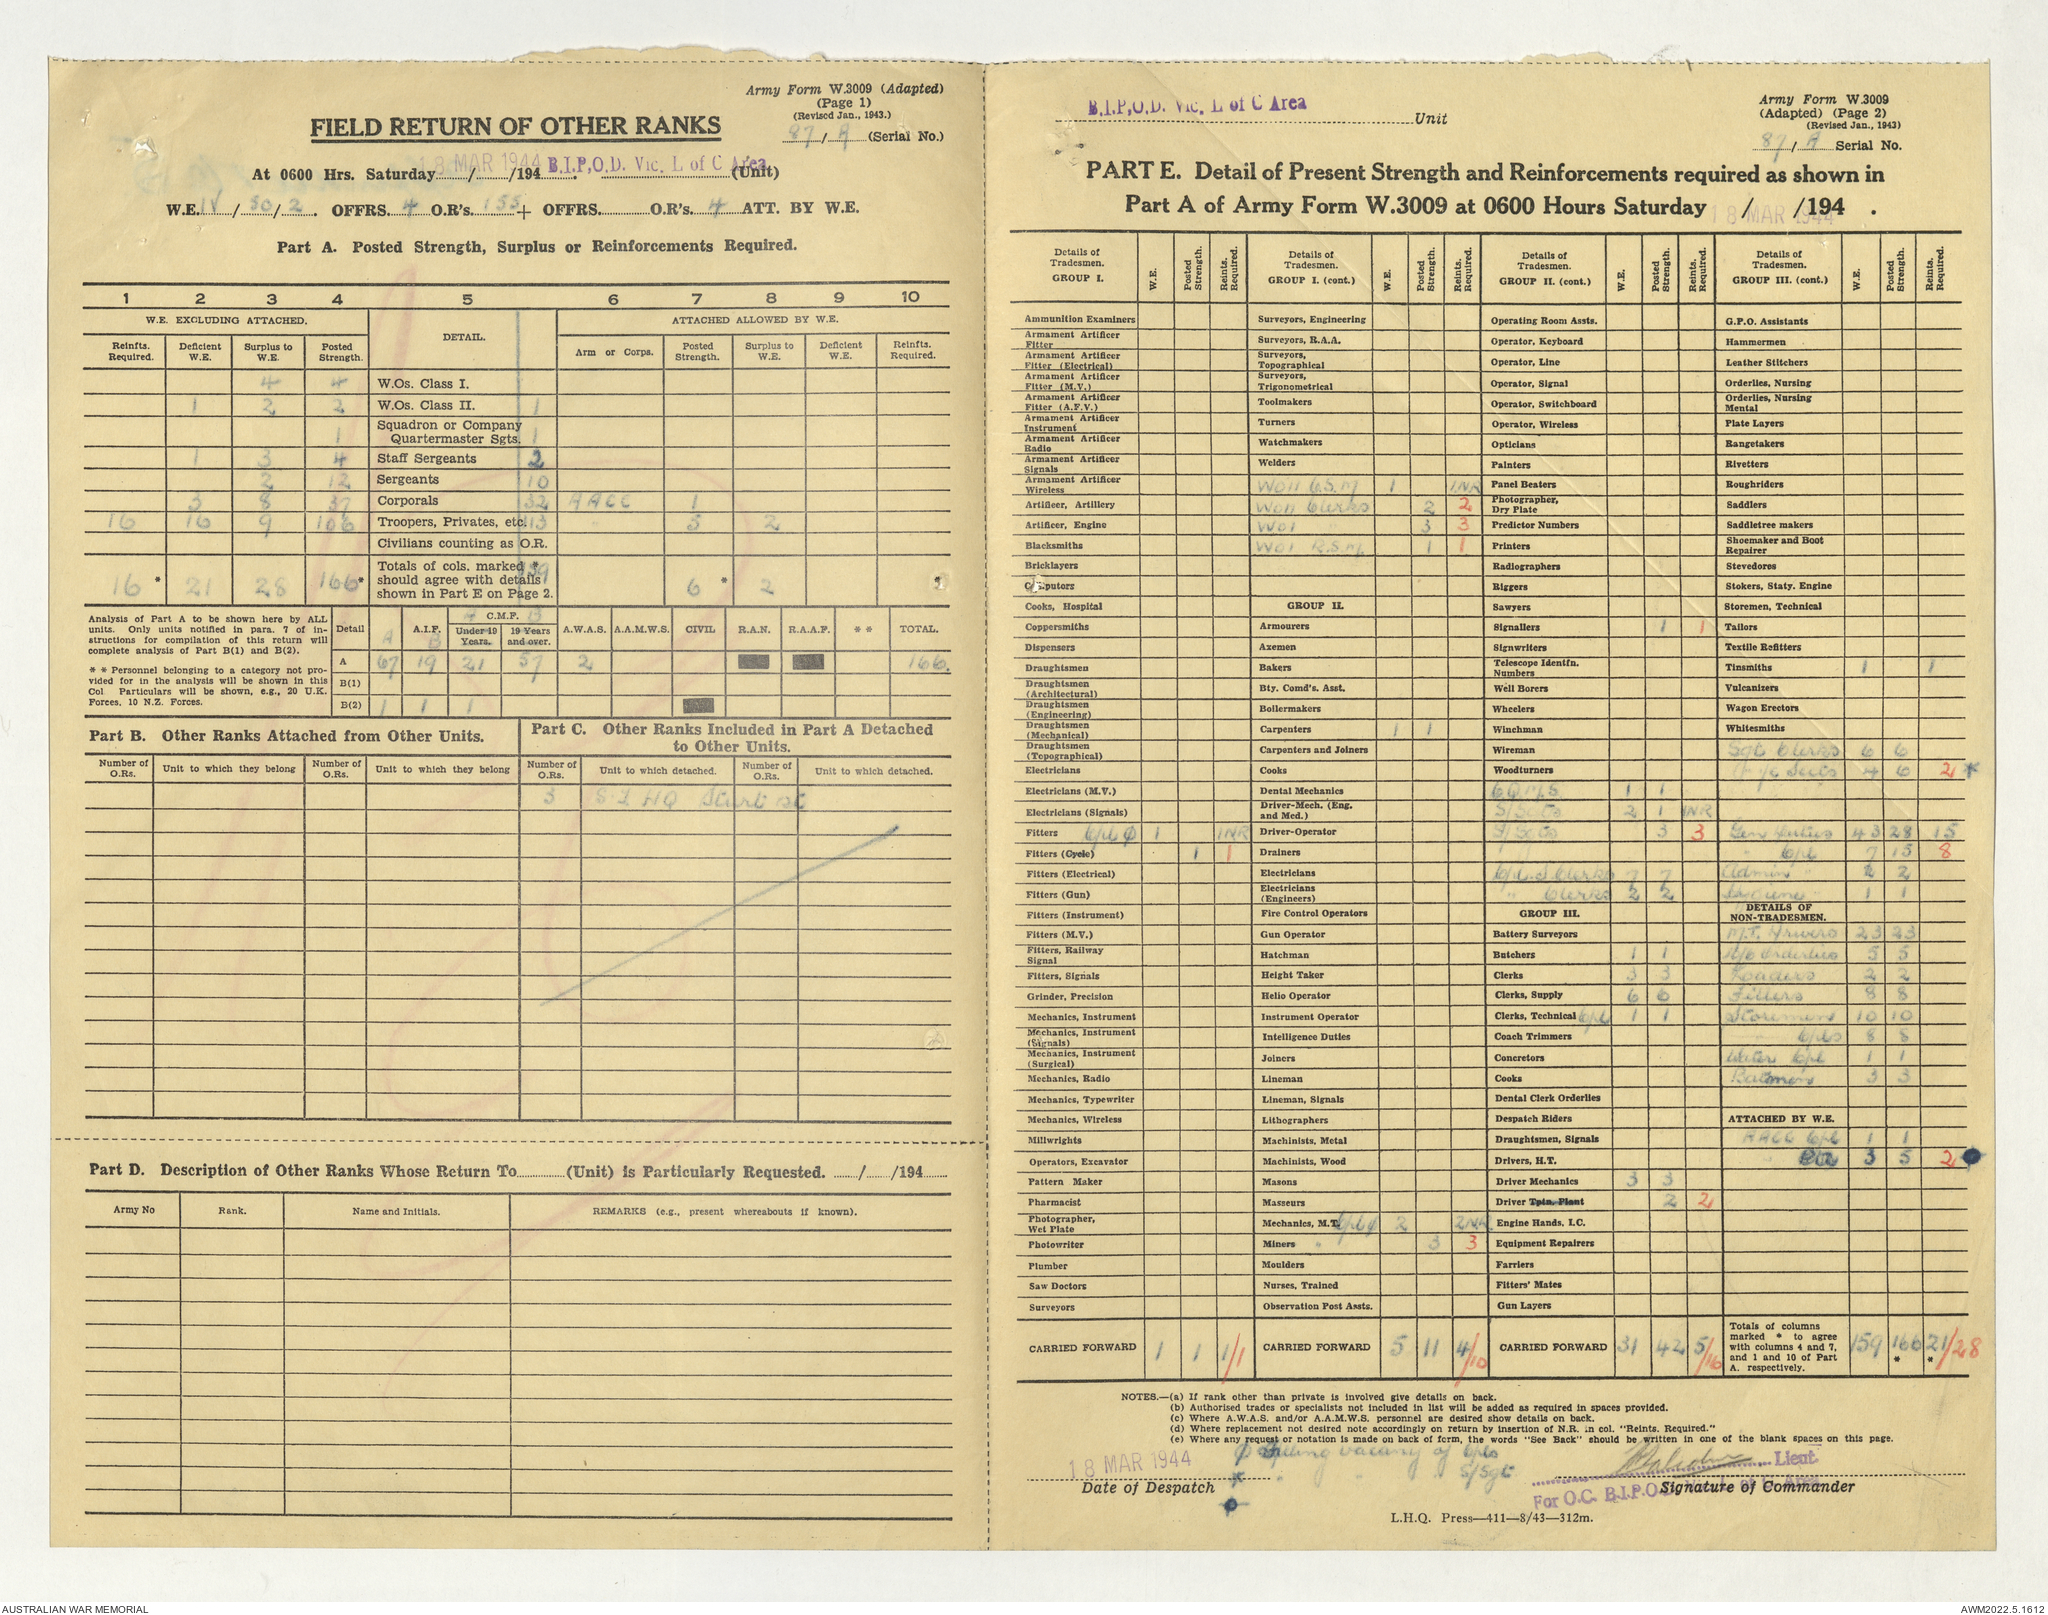 Army Form W.3009 (Adapted)
(Page 1)
(Revised Jan., 1943.)
87/A (Serial No.)
FIELD RETURN OF OTHER RANKS
At 0600 Hrs. Saturday 18 MAR 1944 /194 B.I.P.O.D. Vic. L of C Area (Unit)
W.E. IV/50/2. OFFRS. 4 O.R's. 155 + OFFRS. O.R's. 4 ATT. BY W.E.
Part A. Posted Strength, Surplus or Reinforcements Required.
1 2 3 4 5 6 7 8 9 10
W.E. EXCLUDING ATTACHED. DETAIL. ATTACHED ALLOWED BY W.E.
Reinfts. Required. Deficient W.E. Surplus to W.E. Posted Strength. Arm or Corps. Posted Strength. Surplus to W.E. Deficient W.E. Reinfts. Required.
4 4 W.Os. Class I.
1 2 2 W.Os. Class II. 1
1 Squadron or Company Quartermaster Sgts. 1
1 3 4 Staff Sergeants 2
2 12 Sergeants 10
3 8 37 Corporals 32 AACC 1
16 16 9 106 Troopers, Privates, etc. 113 " 5 2
Civilians counting as O.R.
16 * 21 28 166 * Totals of cols. marked * should agree with details shown in Part E on Page 2. 159 6 * 2 *
Analysis of Part A to be shown here by ALL units. Only units notified in para. 7 of instructions for compilation of this return will complete analysis of Part B(1) and B(2).
* * Personnel belonging to a category not provided for in the analysis will be shown in this Col Particulars will be shown, e.g., 20 U.K. Forces, 10 N.Z. Forces.
Detail A A.I.F. B C.M.F. A B Under 19 Years. 19 Years and over. A.W.A.S. A.A.M.W.S. CIVIL R.A.N. R.A.A.F. * * TOTAL.
A 67 19 21 57 2 166.
B(1)
B(2) 1 1 1
Part B. Other Ranks Attached from Other Units.
Part C. Other Ranks Included in Part A Detached to Other Units.
Number of O.Rs. Unit to which they belong Number of O.Rs. Unit to which they belong Number of O.Rs. Unit to which detached. Number of O.Rs. Unit to which detached.
3 HQ Sturt St
Part D. Description of Other Ranks Whose Return To (Unit) is Particularly Requested. / /194
Army No Rank. Name and Initials. REMARKS (e.g., present whereabouts if known).
B.I.P.O.D. Vic. L of C Area Unit
Army Form W.3009
(Adapted) (Page 2)
(Revised Jan., 1943)
87/A Serial No.
PART E. Detail of Present Strength and Reinforcements required as shown in
Part A of Army Form W.3009 at 0600 Hours Saturday 18 MAR 1944 / /194 .
Details of Tradesmen. GROUP I. W.E. Posted Strength. Reints. Required.
Ammunition Examiners
Armament Artificer Fitter
Armament Artificer Fitter (Electrical)
Armament Artificer Fitter (M.V.)
Armament Artificer Fitter (A.F.V.)
Armament Artificer Instrument
Armament Artificer Radio
Armament Artificer Signals
Armament Artificer Wireless
Artificer, Artillery
Artificer, Engine
Blacksmiths
Bricklayers
Computors
Cooks, Hospital
Coppersmiths
Dispensers
Draughtsmen
Draughtsmen (Architectural)
Draughtsmen (Engineering)
Draughtsmen (Mechanical)
Draughtsmen (Topographical)
Electricians
Electricians (M.V.)
Electricians (Signals)
Fitters Cpl ϕ 1 1NR
Fitters (Cycle) 1 1
Fitters (Electrical)
Fitters (Gun)
Fitters (Instrument)
Fitters (M.V.)
Fitters, Railway Signal
Fitters, Signals
Grinder, Precision
Mechanics, Instrument
Mechanics, Instrument (Signals)
Mechanics, Instrument (Surgical)
Mechanics, Radio
Mechanics, Typewriter
Mechanics, Wireless
Millwrights
Operators, Excavator
Pattern Maker
Pharmacist
Photographer, Wet Plate
Photowriter
Plumber
Saw Doctors
Surveyors
CARRIED FORWARD 1 1 1/1
Details of Tradesmen. GROUP I. (cont.) W.E. Posted Strength. Reints. Required.
Surveyors, Engineering
Surveyors, R.A.A.
Surveyors, Topographical
Surveyors, Trigonometrical
Toolmakers
Turners
Watchmakers
Welders
WOII C.S.M 1 1NR
WOII Clerks 2 2
WOI 3 3
WOI R.S.M. 1 1
GROUP II.
Armourers
Axemen
Bakers
Bty. Comd's. Asst.
Boilermakers
Carpenters 1 1
Carpenters and Joiners
Cooks
Dental Mechanics
Driver-Mech. (Eng. and Med.)
Driver-Operator
Drainers
Electricians
Electricians (Engineers)
Fire Control Operators
Gun Operator
Hatchman
Height Taker
Helio Operator
Instrument Operator
Intelligence Duties
Joiners
Lineman
Lineman, Signals
Lithographers
Machinists, Metal
Machinists, Wood
Masons
Masseurs
Mechanics, M.T. Cpl ϕ 2 2NR
Miners " 3 3
Moulders
Nurses, Trained
Observation Post Assts.
CARRIED FORWARD 5 11 4/10
Details of Tradesmen. GROUP II. (cont.) W.E. Posted Strength. Reints. Required.
Operating Room Assts.
Operator, Keyboard
Operator, Line
Operator, Signal
Operator, Switchboard
Operator, Wireless
Opticians
Painters
Panel Beaters
Photographer, Dry Plate
Predictor Numbers
Printers
Radiographers
Riggers
Sawyers
Signallers 1 1
Signwriters
Telescope Identfn. Numbers
Well Borers
Wheelers
Winchman
Wireman
Woodturners
C.Q.M.S. 1 1
S/Sgts 2 1 1NR
S/Sgts 3 3
Cpl. S. Clerks 7 7
" Clerks 2 2
GROUP III.
Battery Surveyors
Butchers 1 1
Clerks 3 3
Clerks, Supply 6 6
Clerks, Technical Cpl 1 1
Coach Trimmers
Concretors
Cooks
Dental Clerk Orderlies
Despatch Riders
Draughtsmen, Signals
Drivers, H.T.
Driver Mechanics 3 3
Driver Tptn. Plant 2 2
Engine Hands, I.C.
Equipment Repairers
Farriers
Fitters' Mates
Gun Layers
CARRIED FORWARD 31 42 5/16
Details of Tradesmen. GROUP III. (cont.) W.E. Posted Strength. Reints. Required.
G.P.O. Assistants
Hammermen
Leather Stitchers
Orderlies, Nursing
Orderlies, Nursing Mental
Plate Layers
Rangetakers
Rivetters
Roughriders
Saddlers
Saddletree makers
Shoemaker and Boot Repairer
Stevedores
Stokers, Staty. Engine
Storemen, Technical
Tailors
Textile Refitters
Tinsmiths 1 1
Vulcanizers
Wagon Erectors
Whitesmiths
Sgt Clerks 6 6
4 6 2 *
Gen Duties 43 28 15
" Cpl 7 15 8
Admin " 2 2
Hygiene " 1 1
DETAILS OF NON-TRADESMEN.
M.T. Drivers 23 23
Orderlies 5 5
Loaders 2 2
Fillers 8 8
Storemen 10 10
Cpls 8 8
Water Cpl 1 1
Batmen 3 3
ATTACHED BY W.E.
AACC Cpl 1 1
3 5 2
Totals of columns marked * to agree with columns 4 and 7, and 1 and 10 of Part A. respectively. 159 166 * 21/28 *
NOTES.—(a) If rank other than private is involved give details on back.
(b) Authorised trades or specialists not included in list will be added as required in spaces provided.
(c) Where A.W.A.S. and/or A.A.M.W.S. personnel are desired show details on back.
(d) Where replacement not desired note accordingly on return by insertion of N.R. in col. "Reints. Required."
(e) Where any request or notation is made on back of form, the words "See Back" should be written in one of the blank spaces on this page.
ϕ Filling vacancy of Cpls
* " " S/Sgt
18 MAR 1944
Date of Despatch
Lieut.
For O.C. B.I.P.O.D. Vic. L of C Area
Signature of Commander
L.H.Q. Press—411—8/43—312m.
AUSTRALIAN WAR MEMORIAL
AWM2022.5.1612